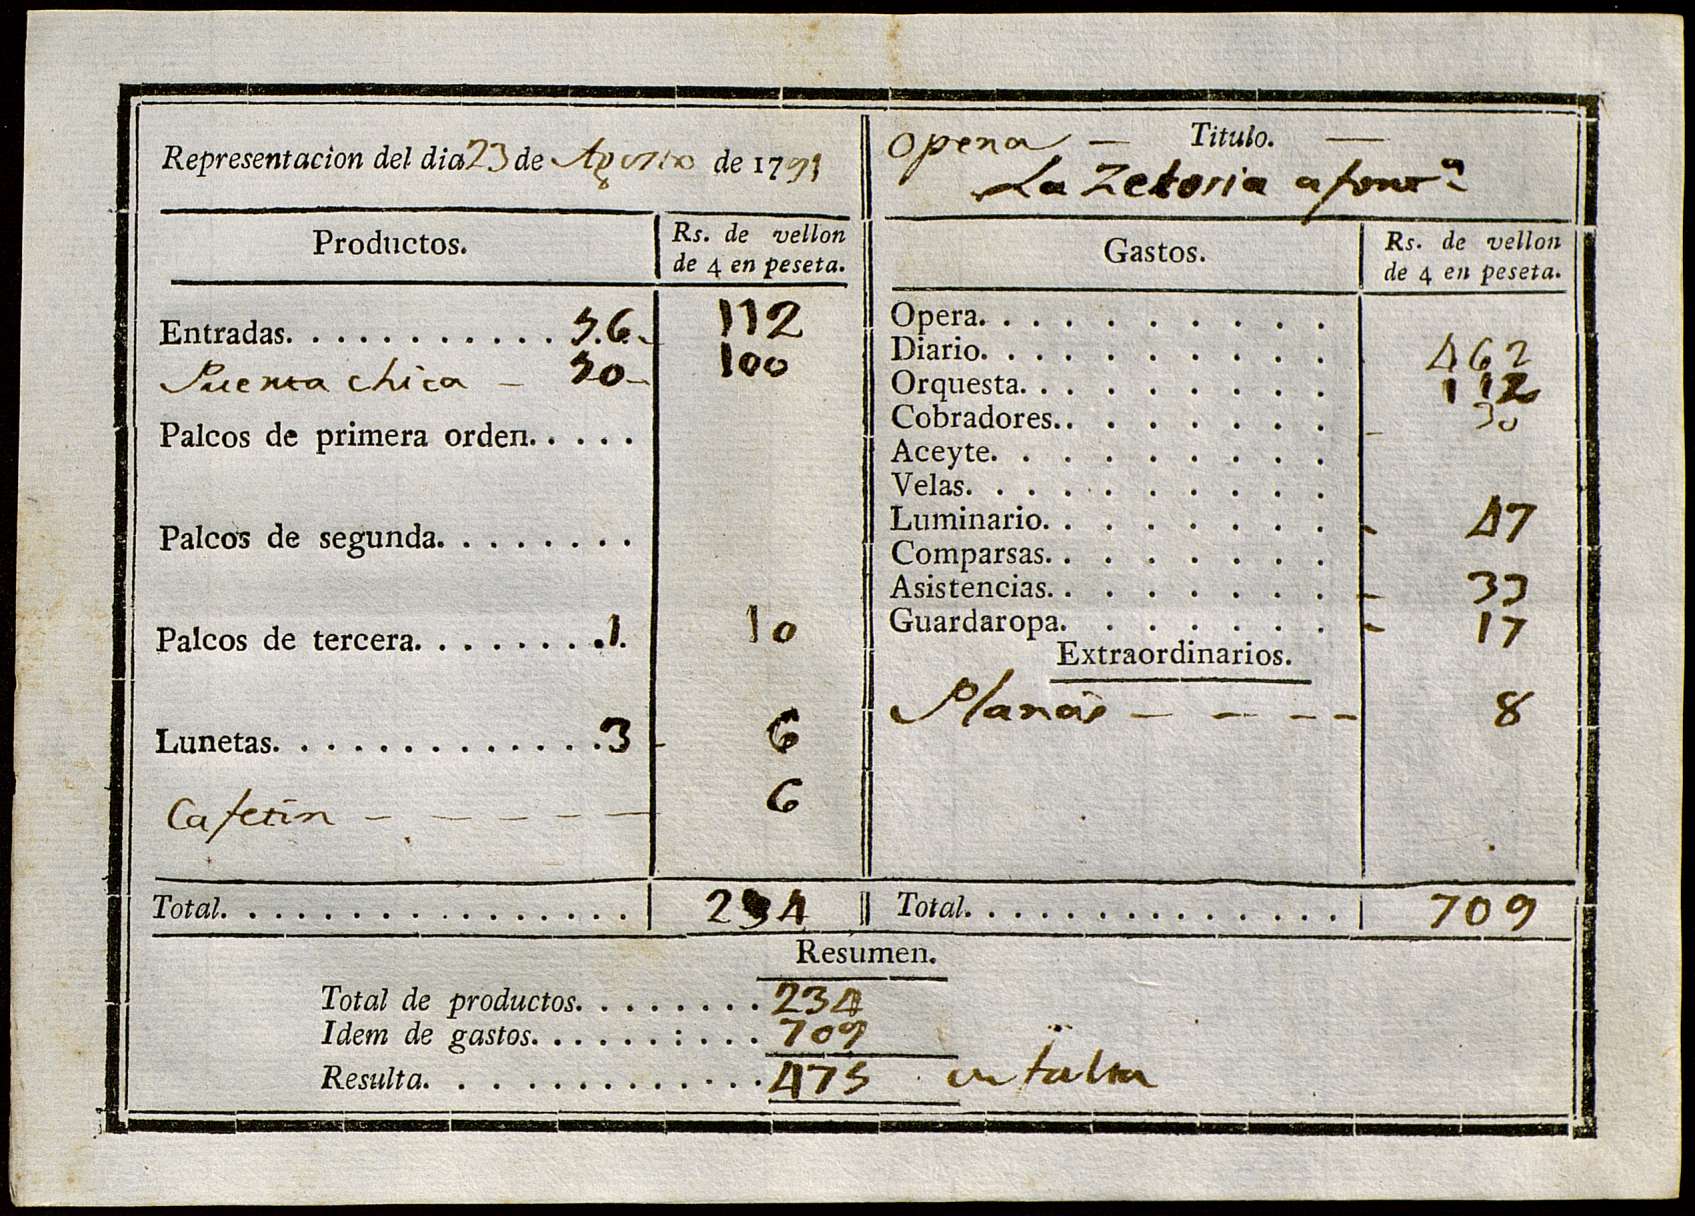 Representacion del dia 23 de Agosto de 1791
Productos.
Rs. de vellon
de 4 en peseta.
Entradas. . . . . . . . . . . 56. 112
Puerta chica - 50 - 100
Palcos de primera orden. . . . .
Palcos de segunda. . . . . . . .
Palcos de tercera. . . . . . . . 1. 10
Lunetas. . . . . . . . . . . . . 3 - 6
Cafetin - - - - - - 6
Total. . . . . . . . . . . . . . . . 234
Opera - Titulo. -
La
Gastos.
Rs. de vellon
de 4 en peseta.
Opera. . . . . . . . . . .
Diario. . . . . . . . . . . 462
Orquesta. . . . . . . . . . 112
Cobradores.. . . . . . . . - 30
Aceyte. . . . . . . . . .
Velas. . . . . . . . . . .
Luminario. . . . . . . . . - 47
Comparsas. . . . . . . . .
Asistencias. . . . . . . . - 33
Guardaropa. . . . . . . . - 17
Extraordinarios.
- - - - 8
Total. . . . . . . . . . . . . . . 709
Resumen.
Total de productos. . . . . . . . 234
Idem de gastos. . . . . . : . . . 709
Resulta. . . . . . . . . . . . . . 475 en falta